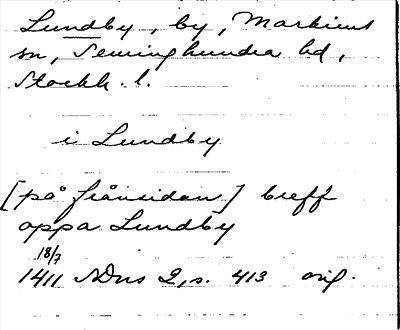 Lundby, by, Markims
sn, Seminghundra hd,
Stockh. l.
i Lundby
[på frånsidan] breff
oppa Lundby
18/7
1411 SDns 2, s. 413 orig.